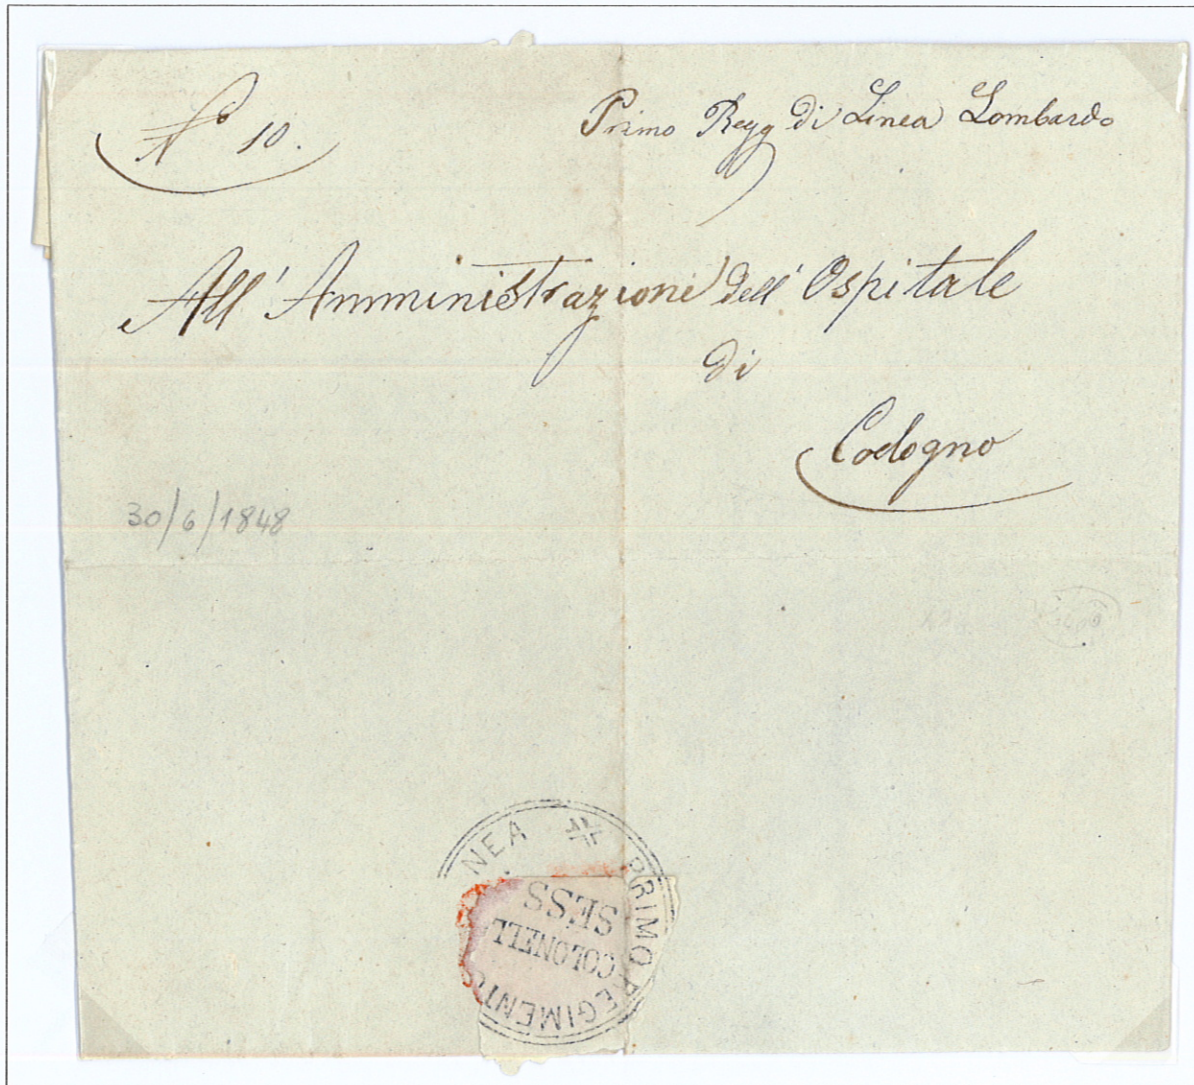 N° 10.
Primo Regg di Linea Lombardo
All' Amministrazione dell' Ospitale
di
Codogno
30/6/1848
PRIMO REGIMENTO NEA
COLONELL
SESS